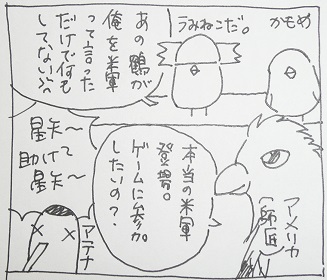 かもめ
うみねこだ。
あの鶴が
俺を米軍
って言った
だけで何も
してない
本当の米軍
登場。
ゲームに参加
したいの？
アメリカ
(師匠)
星矢～
助けて
星矢～
アテナ